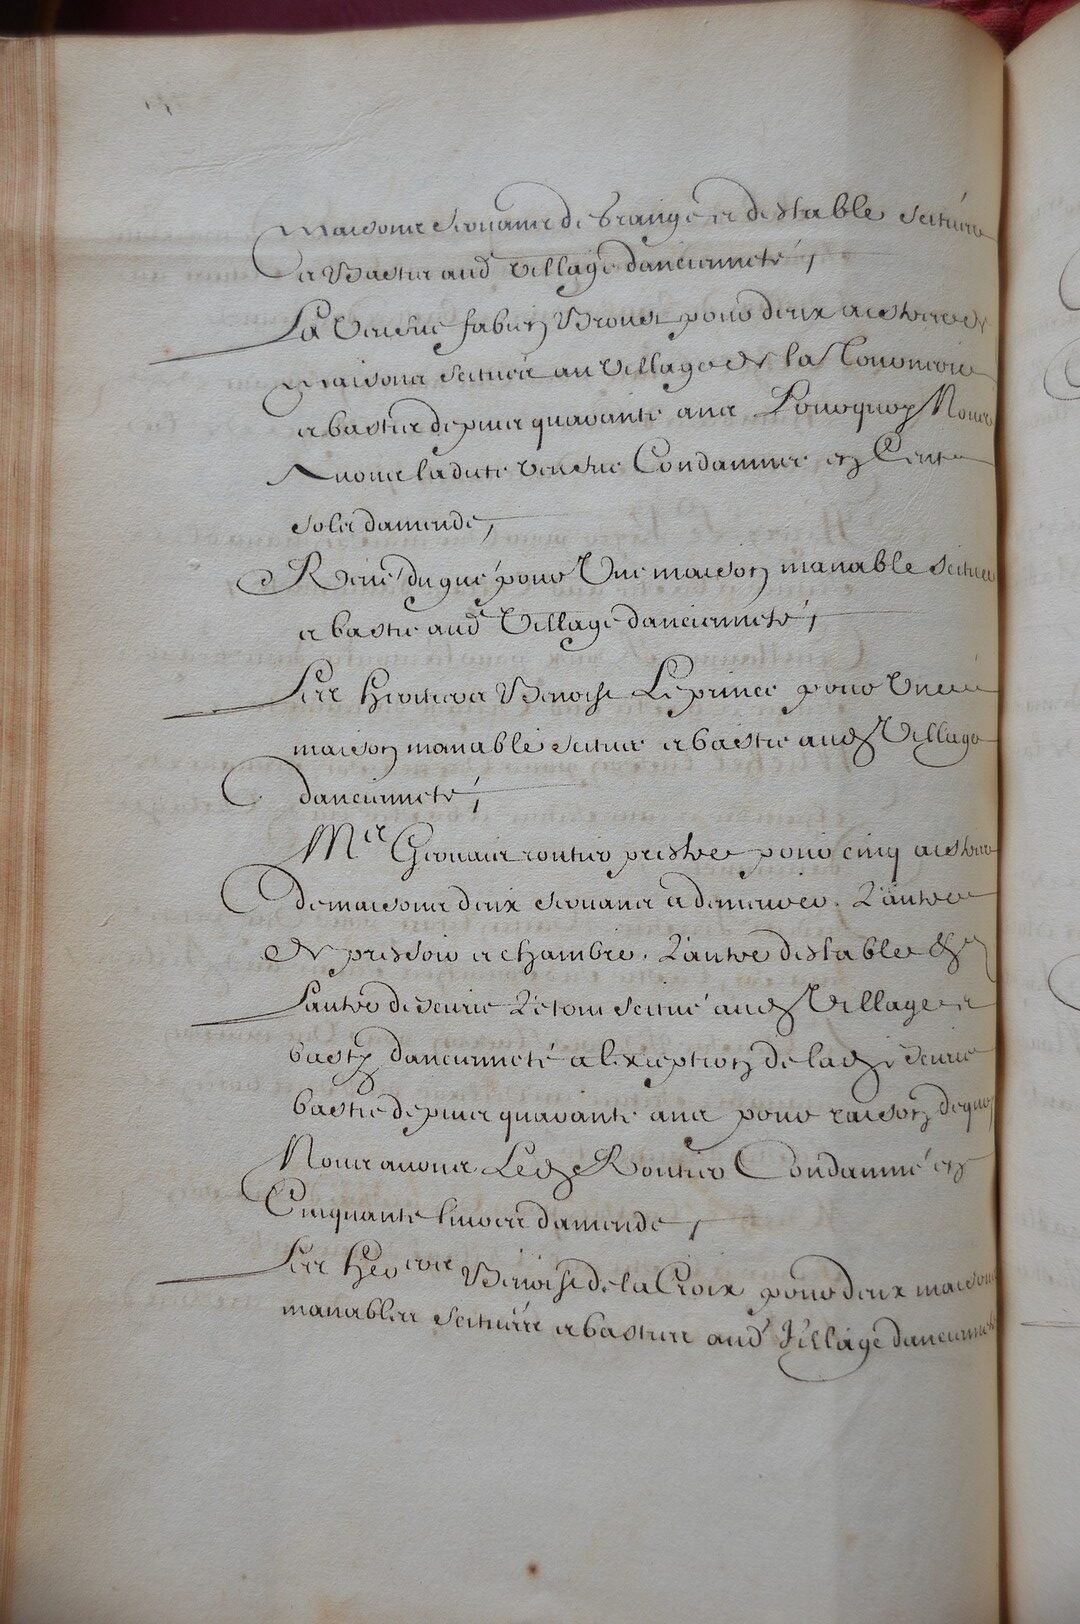 maisons servans de grange et destable scituées
et Basties aud village danciennete,
La veufue fabien Brouet pour deux aistres de
maisons scituées au village de la
et basties depuis quarante ans Pourquoy Nous
Auons ladite veufue Condamnee en Cent
solz damende,
René dugué pour Une maison manable scituee
et bastie aud Village dancienneté,
Les heritiers Benoist Leprince pour Une
maison manable scituee et bastie aud Village
dancienneté,
Mre Geruais routier prestre pour cinq aistres
de maisons deux seruans a demeurer. L'autre
de pressoir et chambre. L'autre destable Et
Lautre descurie Le tout scitué aud Village et
basty dancienneté a lexception de lad escurie
bastie depuis quarante ans pour raison dequoy
Nous auons Led Routier Condamné en
Cinquante liures damende,
Les her.ers Benoist de la Croix pour deux maisons
manables scituées et basties aud Village dancienneté